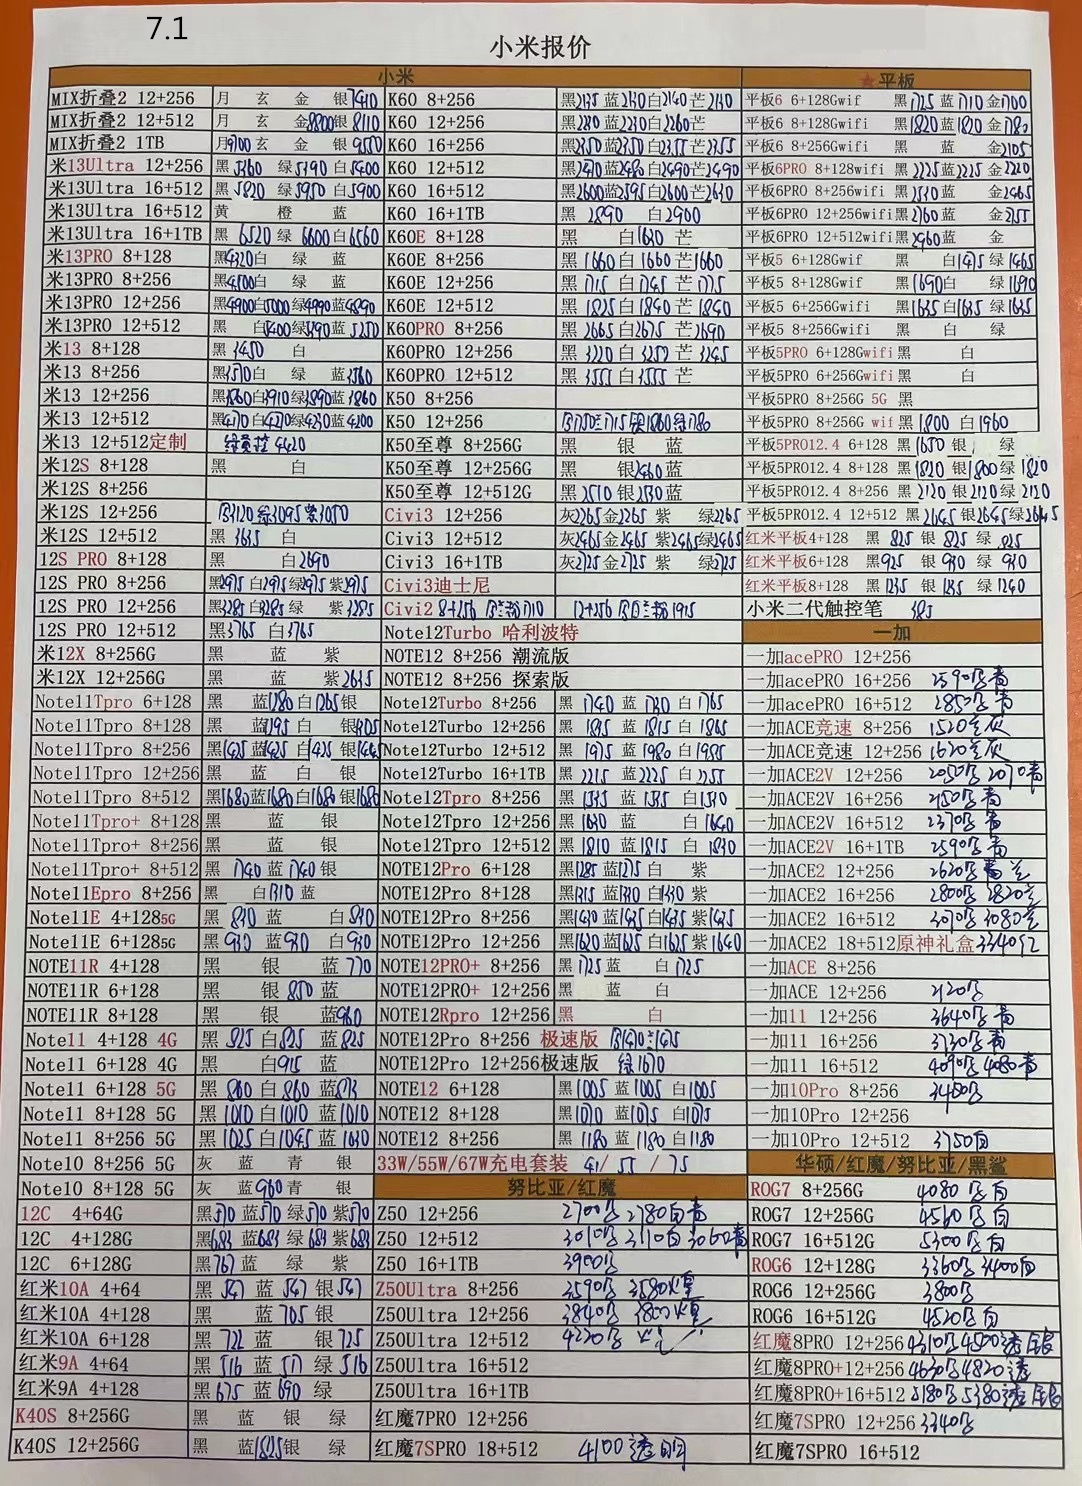 7.1
小米报价
小米
MIX折叠2 12+256 月 玄 金 银7410
MIX折叠2 12+512 月 玄 金8800银8110
MIX折叠2 1TB 月9700 玄 金 银9550
米13Ultra 12+256 黑5360 绿5390 白5400
米13Ultra 16+512 黑5820 绿5950 白5900
米13Ultra 16+512 黄 橙 蓝
米13Ultra 16+1TB 黑6520 绿6600白6560
米13PRO 8+128 黑4320白 绿 蓝
米13PRO 8+256 黑4500白 绿 蓝
米13PRO 12+256 黑4900白5000绿4990蓝4890
米13PRO 12+512 黑 白5400绿5390蓝5250
米13 8+128 黑3450 白
米13 8+256 黑3570白 绿 蓝3560
米13 12+256 黑3860白3910绿3890蓝3860
米13 12+512 黑4170白4270绿4230蓝4200
米13 12+512定制 4420
米12S 8+128 黑 白
米12S 8+256
米12S 12+256 3120绿3095紫3050
米12S 12+512 黑3635 白
12S PRO 8+128 黑 白2690
12S PRO 8+256 黑2975白2975绿2975紫2975
12S PRO 12+256 黑3285白3285绿 紫3285
12S PRO 12+512 黑3765 白3765
米12X 8+256G 黑 蓝 紫
米12X 12+256G 黑 蓝 紫2635
Note11Tpro 6+128 黑 蓝1280白1265银
Note11Tpro 8+128 黑 蓝1395白 银1305
Note11Tpro 8+256 黑1425蓝1425 白1425 银1445
Note11Tpro 12+256 黑 蓝 白 银
Note11Tpro 8+512 黑1680蓝1680白1680银1680
Note11Tpro+ 8+128 黑 蓝 银
Note11Tpro+ 8+256 黑 蓝 银
Note11Tpro+ 8+512 黑1740蓝1740银
Note11Epro 8+256 黑 白1310 蓝
Note11E 4+1285G 黑830 蓝 白830
Note11E 6+1285G 黑930 蓝930 白930
NOTE11R 4+128 黑 银 蓝770
NOTE11R 6+128 黑 银850蓝
NOTE11R 8+128 黑 银 蓝960
Note11 4+128 4G 黑825白825蓝825
Note11 6+128 4G 黑 白915 蓝
Note11 6+128 5G 黑860白860蓝873
Note11 8+128 5G 黑1010白1010蓝1010
Note11 8+256 5G 黑1025白1045蓝1030
Note10 8+256 5G 灰 蓝 青 银
Note10 8+128 5G 灰 蓝960青 银
12C 4+64G 黑570 蓝570 绿570 紫570
12C 4+128G 黑683 蓝683 绿683 紫683
12C 6+128G 黑767 蓝 绿 紫
红米10A 4+64 黑547 蓝547 银547
红米10A 4+128 黑 蓝705银
红米10A 6+128 黑722 蓝 银725
红米9A 4+64 黑516 蓝517 绿516
红米9A 4+128 黑675 蓝690 绿
K40S 8+256G 黑 蓝 银 绿
K40S 12+256G 黑 蓝1825银 绿
K60 8+256 黑2135 蓝2130白2140 芒2130
K60 12+256 黑2230蓝2230白2260芒
K60 16+256 黑2350蓝2350白2355芒2355
K60 12+512 黑2470蓝2480白2490芒2490
K60 16+512 黑2600蓝2595白2600芒2630
K60 16+1TB 黑2890 白2900
K60E 8+128 黑 白1630 芒
K60E 8+256 黑1660白1660芒1660
K60E 12+256 黑1715白1745芒1775
K60E 12+512 黑1825白1840芒1840
K60PRO 8+256 黑2665白2675芒2690
K60PRO 12+256 黑3220白3250芒3245
K60PRO 12+512 黑3555白3555芒
K50 8+256
K50 12+256 1750 1715银1860绿1780
K50至尊 8+256G 黑 银 蓝
K50至尊 12+256G 黑 银2460蓝
K50至尊 12+512G 黑2510银2530蓝
Civi3 12+256 灰2265金2265 紫 绿2265
Civi3 12+512 灰2465金2465 紫2465绿2465
Civi3 16+1TB 灰2725金2725 紫 绿2725
Civi3迪士尼
Civi2 8+256 1710 12+256 1915
Note12Turbo 哈利波特
NOTE12 8+256 潮流版
NOTE12 8+256 探索版
Note12Turbo 8+256 黑1740 蓝1730 白1765
Note12Turbo 12+256 黑1845 蓝1815 白1865
Note12Turbo 12+512 黑1975 蓝1980 白1985
Note12Turbo 16+1TB 黑2215 蓝2225 白2255
Note12Tpro 8+256 黑1535 蓝1535 白1530
Note12Tpro 12+256 黑1630 蓝 白1640
Note12Tpro 12+512 黑1810 蓝1815 白1830
NOTE12Pro 6+128 黑1285 蓝1275白 紫
NOTE12Pro 8+128 黑1315 蓝1320 白1330 紫
NOTE12Pro 8+256 黑1430蓝1435白1435 紫1435
NOTE12Pro 12+256 黑1620蓝1625白1625紫1640
NOTE12PRO+ 8+256 黑1725蓝 白1725
NOTE12PRO+ 12+256 黑 蓝 白
NOTE12Rpro 12+256 黑 白
NOTE12Pro 8+256 极速版 1470 1475
NOTE12Pro 12+256极速版 绿1670
NOTE12 6+128 黑1005 蓝1005 白1005
NOTE12 8+128 黑1070 蓝1075 白1075
NOTE12 8+256 黑1180 蓝1180 白1180
33W/55W/67W充电套装 41/55/75
努比亚/红魔
Z50 12+256 2700 2780白青
Z50 12+512 3010 3110白3060青
Z50 16+1TB 3900
Z50Ultra 8+256 3590 3580
Z50Ultra 12+256 3840 3800
Z50Ultra 12+512 4220
Z50Ultra 16+512
Z50Ultra 16+1TB
红魔7PRO 12+256
红魔7SPRO 18+512 4100透明
★平板
平板6 6+128Gwif 黑1725 蓝1710 金1700
平板6 8+128Gwifi 黑1820蓝1820 金1780
平板6 8+256Gwifi 黑 蓝 金2105
平板6PRO 8+128wifi 黑2225蓝2225 金2220
平板6PRO 8+256wifi 黑2530蓝 金2465
平板6PRO 12+256wifi黑2760蓝 金2755
平板6PRO 12+512wifi黑2960蓝 金
平板5 6+128Gwif 黑 白1475 绿1465
平板5 8+128Gwif 黑1690白 绿1690
平板5 6+256Gwifi 黑1635白1635 绿1635
平板5 8+256Gwifi 黑 白 绿
平板5PRO 6+128Gwifi黑 白
平板5PRO 6+256Gwifi黑 白
平板5PRO 8+256G 5G 黑
平板5PRO 8+256G wif 黑1800 白1960
平板5PRO12.4 6+128 黑1650 银 绿
平板5PRO12.4 8+128 黑1820 银1800绿1820
平板5PRO12.4 8+256 黑2120 银2120绿2120
平板5PRO12.4 12+512 黑2645银2645绿2645
红米平板4+128 黑825 银825 绿825
红米平板6+128 黑925 银930 绿930
红米平板8+128 黑1235 银1235 绿1240
小米二代触控笔 385
一加
一加acePRO 12+256
一加acePRO 16+256 2590 青
一加acePRO 16+512 2850 青
一加ACE竞速 8+256 1520 灰
一加ACE竞速 12+256 1620 灰
一加ACE2V 12+256 2050 2070青
一加ACE2V 16+256 2150 青
一加ACE2V 16+512 2370 青
一加ACE2V 16+1TB 2590 青
一加ACE2 12+256 2620
一加ACE2 16+256 2800 2820
一加ACE2 16+512 3070 3080
一加ACE2 18+512原神礼盒 3340红
一加ACE 8+256
一加ACE 12+256 2120
一加11 12+256 3640 青
一加11 16+256 3730 青
一加11 16+512 4090 4080青
一加10Pro 8+256 3450
一加10Pro 12+256
一加10Pro 12+512 3750白
华硕/红魔/努比亚/黑鲨
ROG7 8+256G 4080 白
ROG7 12+256G 4560 白
ROG7 16+512G 5300 白
ROG6 12+128G 3360 3400白
ROG6 12+256G 3800
ROG6 16+512G 4520 白
红魔8PRO 12+256 4310 4500透
红魔8PRO+12+256 4630 4820透
红魔8PRO+16+512 5180 5380透
红魔7SPRO 12+256 3340
红魔7SPRO 16+512